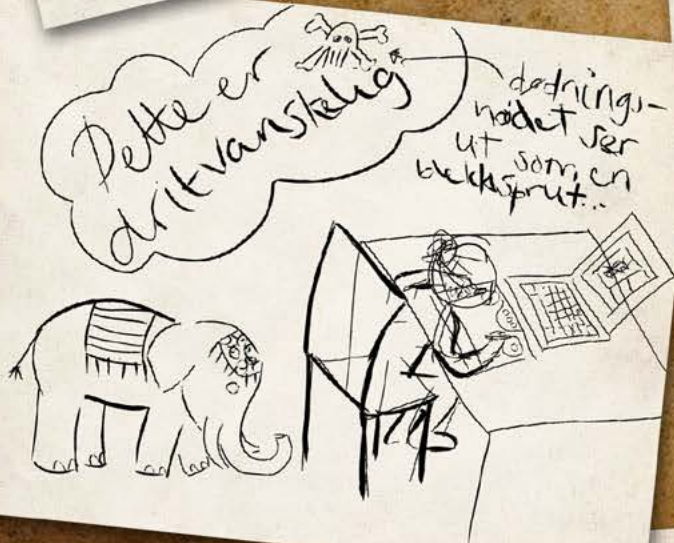 Dette er
dritvanskelig
dødnings-
hodet ser
ut som en
blekksprut...